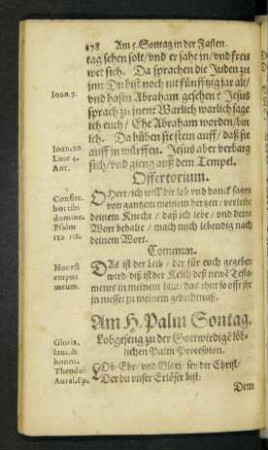 178 Am 5. Sontag in der Fasten.
tag sehen solt/ vnd er sahe jn/ vnd frew
wet sich. Da sprachen die Juden zu
jm: Du bist noch nit fünfftzig jar alt/
Ioan 7.
vnd hastu Abraham gesehen? Jesus
sprach zu jnen: Warlich warlich sage
ich euch/ Ehe Abraham worden/ bin
ich. Da hüben sie stein auff/ daß sie
Ioan. 10.
auff jn würffen. Jesus aber verbarg
Luce 4.
sich/ vnd gieng auß dem Tempel.
Ant.
Offertorium.
O Herr/ ich will dir lob vnd danck sagen
Confite.
von gantzem meinem hertzen/ verleihe
bor tibi
deinem Knecht/ daß ich lebe/ vnd deine
domine.
Wort behalte/ mach mich lebendig nach
Psalm
deinem Wort.
Commun.
Das ist der Leib/ der für euch gegeben
Hoc est
wird/ diß ist der Kelch deß newē Testa-
corpus
ments in meinem blut/ das thut so offt jhr
meum.
jn niesset zu meinem gedechtnuß.
Am H. Palm Sontag.
Lobgesang zu der Gottwirdigē löb-
Gloria,
lichen Palm Procession.
laus, &
honor.
Lob/ Ehr/ vnd Glori/ sey dir Christ/
Der du vnser Erlöser bist:
Dem